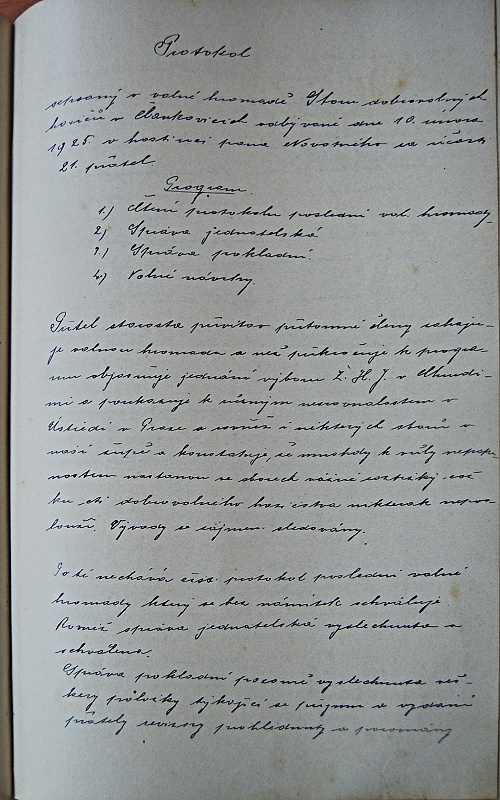 Protokol
sepsaný o valné hromadě Sboru dobrovolných
hasičů v Člankovicích odbývané dne 10. února
1925. v hostinci pana Novotného za účasti
21. přátel.
Program.
1.) Čtení protokolu poslední val. hromady
2.) Správa jednatelská
3.) Správa pokladní.
4.) Volné návrhy.
Přítel starosta přivítav přítomné členy zahaju-
je valnou hromadu a než přikročuje k progra-
mu objasňuje jednání výboru Ž. H. J. v Chrudi-
mi a poukazuje k různým nesrovnalostem v
Ústředí v Praze a rovněž i některých sborů v
naší župě a konstatuje, že mnohdy k vůli
nostem nastanou ve sborech různé roztržky což
ku cti dobrovolného hasičstva nikterak nepos-
louží. Vývody se zájmem sledovány.
Poté nechává čísti protokol poslední valné
hromady který se bez námitek schvaluje.
Rovněž správa jednatelská vyslechnuta a
schválena.
Správa pokladní pozorně vyslechnuta veš-
kery položky týkající se příjmu a vydání
přátely revisory prohlednuty a porovnány